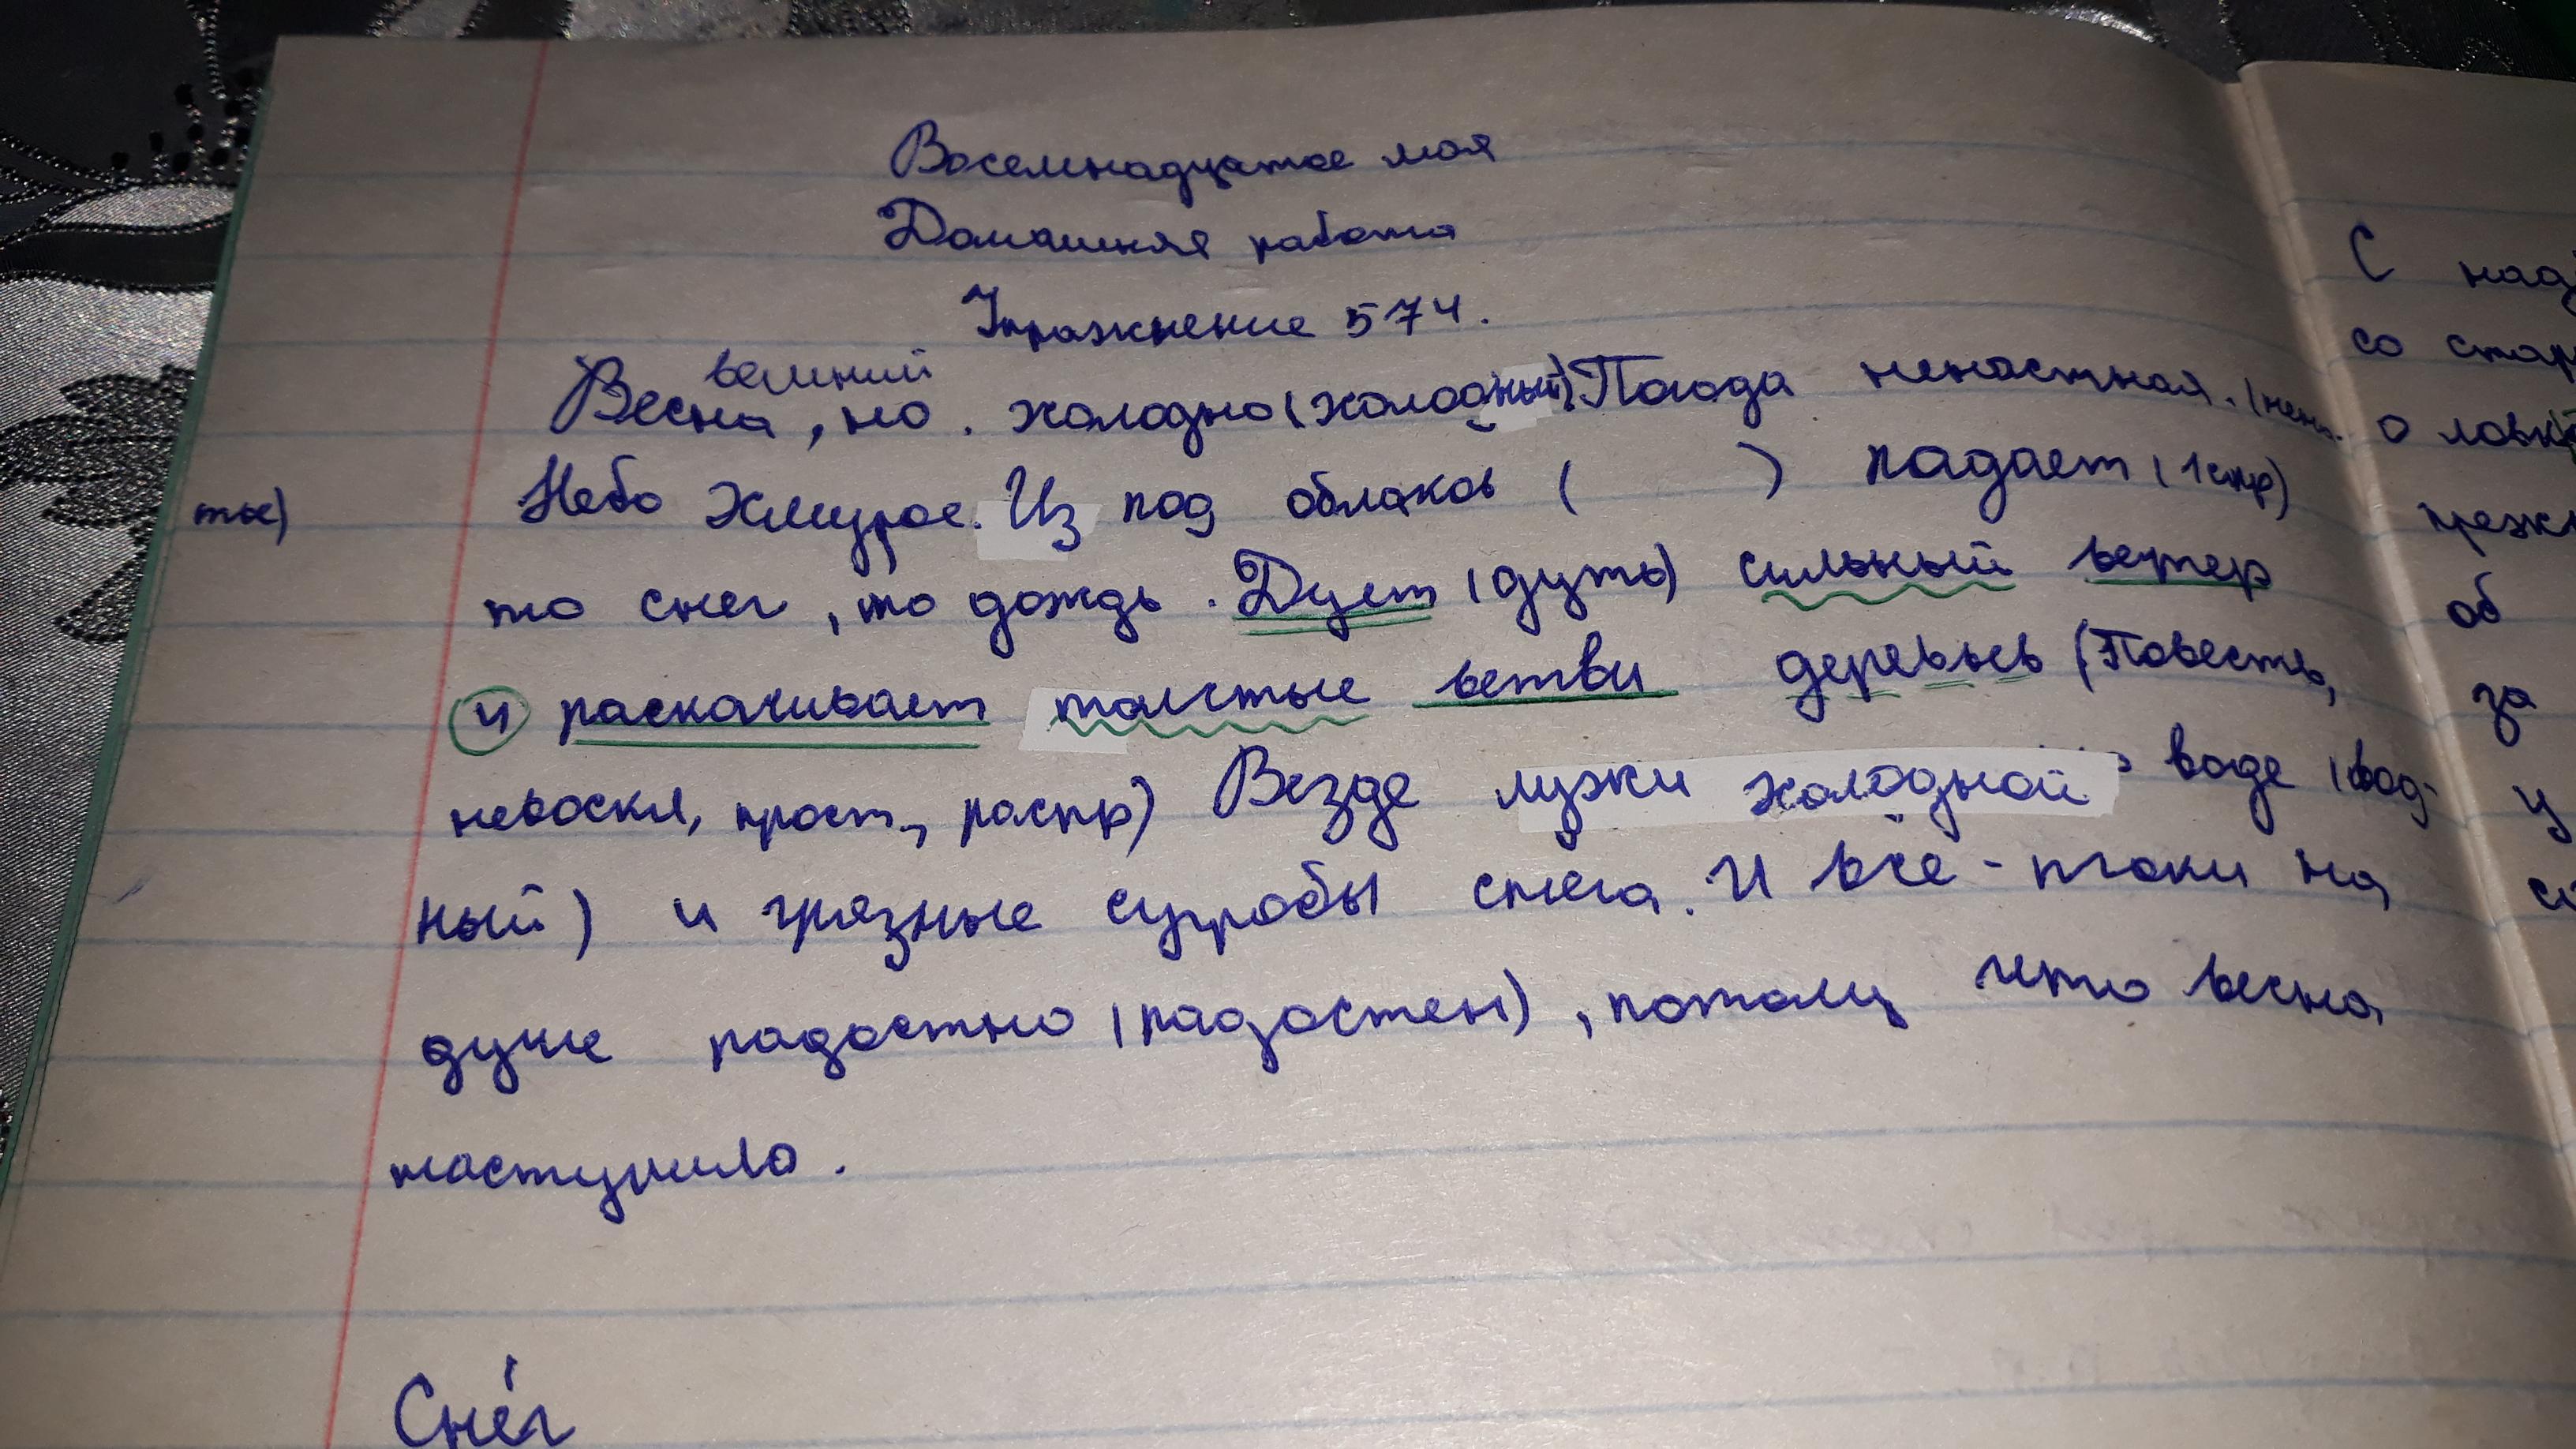 Восемнадцатое мая
Домашняя работа
Упражнение 574.
весенний
Весна, но. холодно (холодный) Погода ненастная. (нена-
тье) Небо хмурое. Из под облаков ( ) падает (1 спр)
то снег, то дождь. Дует (дуть) сильный ветер
и раскачивает толстые ветви деревьев (Повеств,
невоскл, прост, распр) Везде лужи холодной воде (вод-
ный) и грязные сугробы снега. И все-таки на
душе радостно (радостен), потому что весна
наступила.
Сне́г
С над
со стар
о ловк
преж
об
за
у